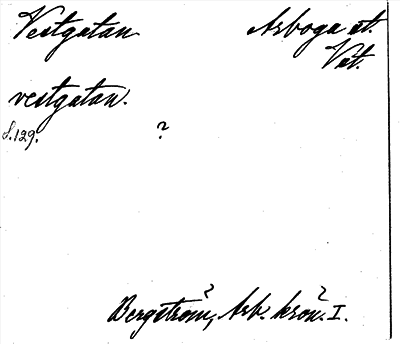 Vestgatan Arboga st.
Vst.
vestgatan.
s. 129. ?
Bergström, Arb. krön. I.